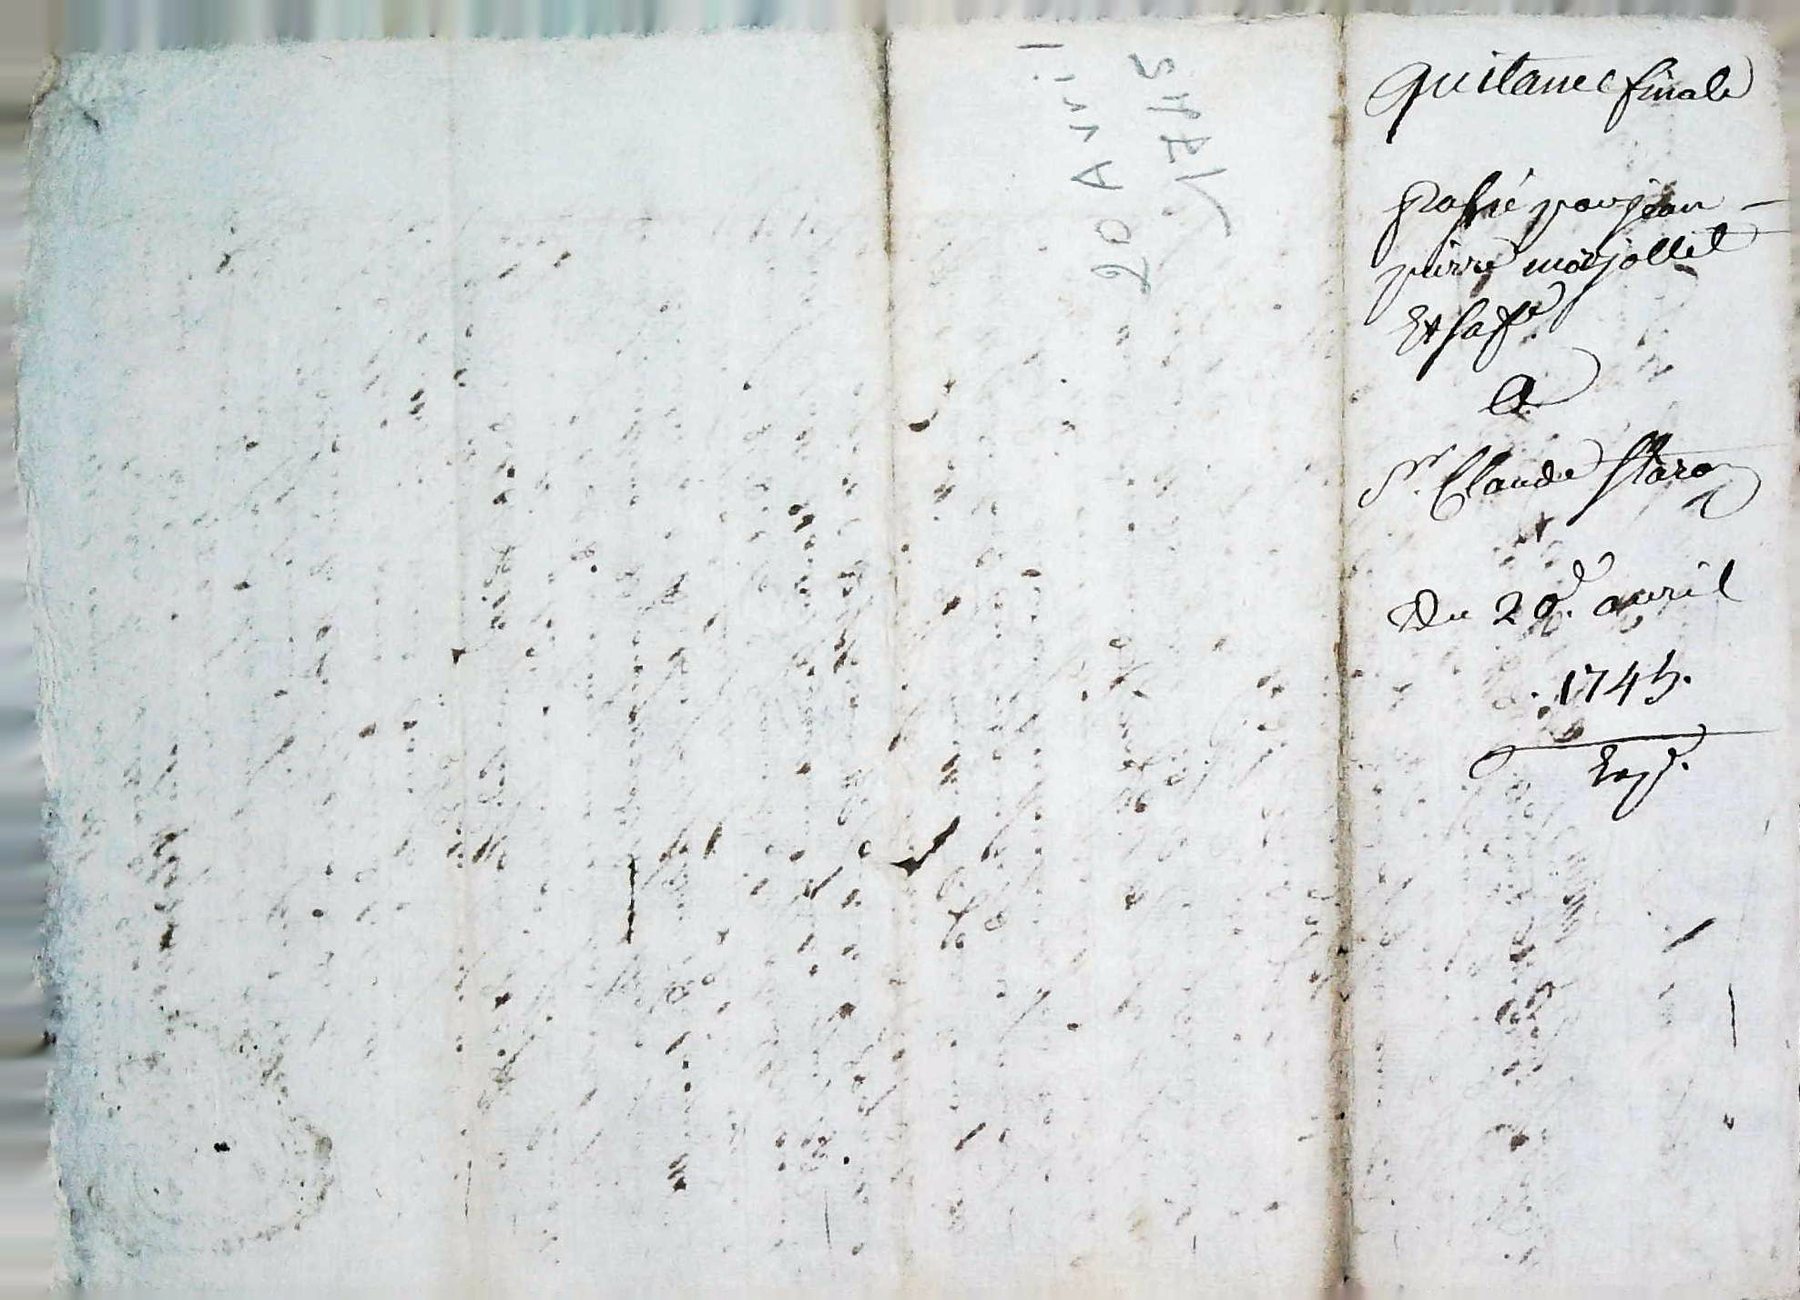 quitance finale
passé par jean
pierre marjollet
Et sa fe
A
Sr. Claude Staron
Du 20e. avril
1745.
Exp.
20 Avril
1745